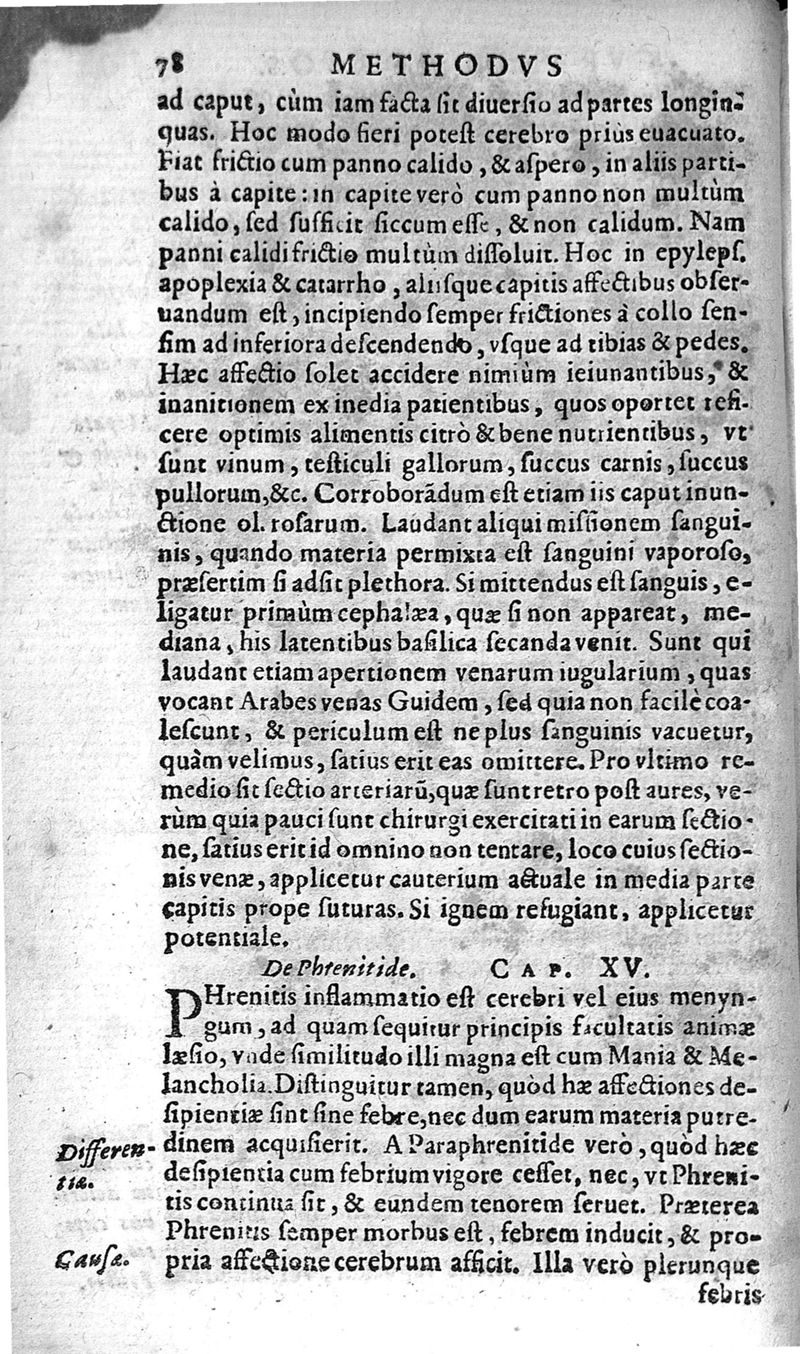 78 METHODVS
ad caput, cùm iam facta sit diuersio ad partes longin-
quas. Hoc modo fieri potest cerebro priùs euacuato.
Fiat frictio cum panno calido, & aspero, in aliis parti-
bus à capite: in capite verò cum panno non multùm
calido, sed sufficit siccum esse, & non calidum. Nam
panni calidi frictio multùm dissoluit. Hoc in epyleps.
apoplexia & catarrho, aliisque capitis affectibus obser-
uandum est, incipiendo semper frictiones à collo sen-
sim ad inferiora descendendo, vsque ad tibias & pedes.
Hæc affectio solet accidere nimiùm ieiunantibus, &
inanitionem ex inedia patientibus, quos oportet refi-
cere optimis alimentis citrò & bene nutrientibus, vt
sunt vinum, testiculi gallorum, succus carnis, succus
pullorum, &c. Corroborãdum est etiam iis caput inun-
ctione ol. rosarum. Laudant aliqui missionem sangui-
nis, quando materia permixta est sanguini vaporoso,
præsertim si adsit plethora. Si mittendus est sanguis, e-
ligatur primùm cephalæa, quæ si non appareat, me-
diana, his latentibus basilica secanda venit. Sunt qui
laudant etiam apertionem venarum iugularium, quas
vocant Arabes venas Guidem, sed quia non facilè coa-
lescunt, & periculum est ne plus sanguinis vacuetur,
quàm velimus, satius erit eas omittere. Pro vltimo re-
medio sit sectio arteriarũ, quæ sunt retro post aures, ve-
rùm quia pauci sunt chirurgi exercitati in earum sectio-
ne, satius erit id omnino non tentare, loco cuius sectio-
nis venæ, applicetur cauterium actuale in media parte
capitis prope suturas. Si ignem refugiant, applicetur
potentiale.
De Phrenitide. CAP. XV.
PHrenitis inflammatio est cerebri vel eius menyn-
gum, ad quam sequitur principis facultatis animæ
læsio, vnde similitudo illi magna est cum Mania & Me-
lancholia. Distinguitur tamen, quòd hæ affectiones de-
sipientiæ sint sine febre, nec dum earum materia putre-
Differen- dinem acquisierit. A Paraphrenitide verò, quòd hæc
tiæ. desipientia cum febrium vigore cesset, nec, vt Phreni-
tis continua sit, & eundem tenorem seruet. Præterea
Phrenitis semper morbus est, febrem inducit, & pro-
Causæ. pria affectione cerebrum afficit. Illa verò plerunque
febris